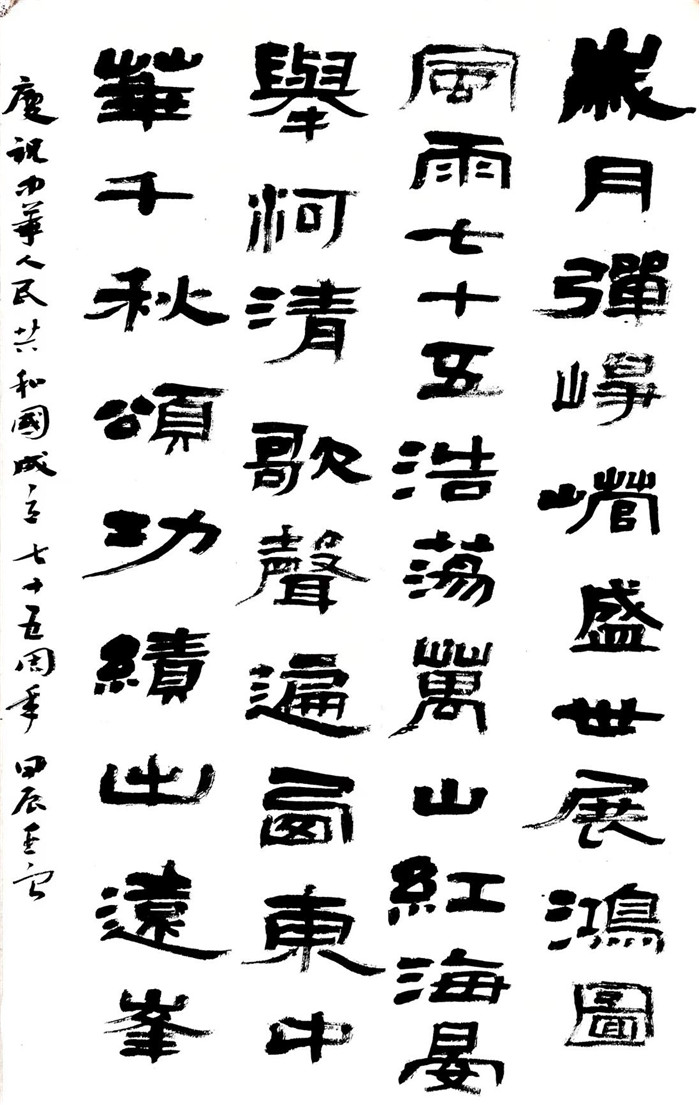 歲月彈崢嶸盛世展鴻圖
風雨七十五浩蕩萬山紅海晏
舉河清歌聲遍西東中
華千秋頌功績出遠峯
慶祝中華人民共和國成立七十五周年 甲辰